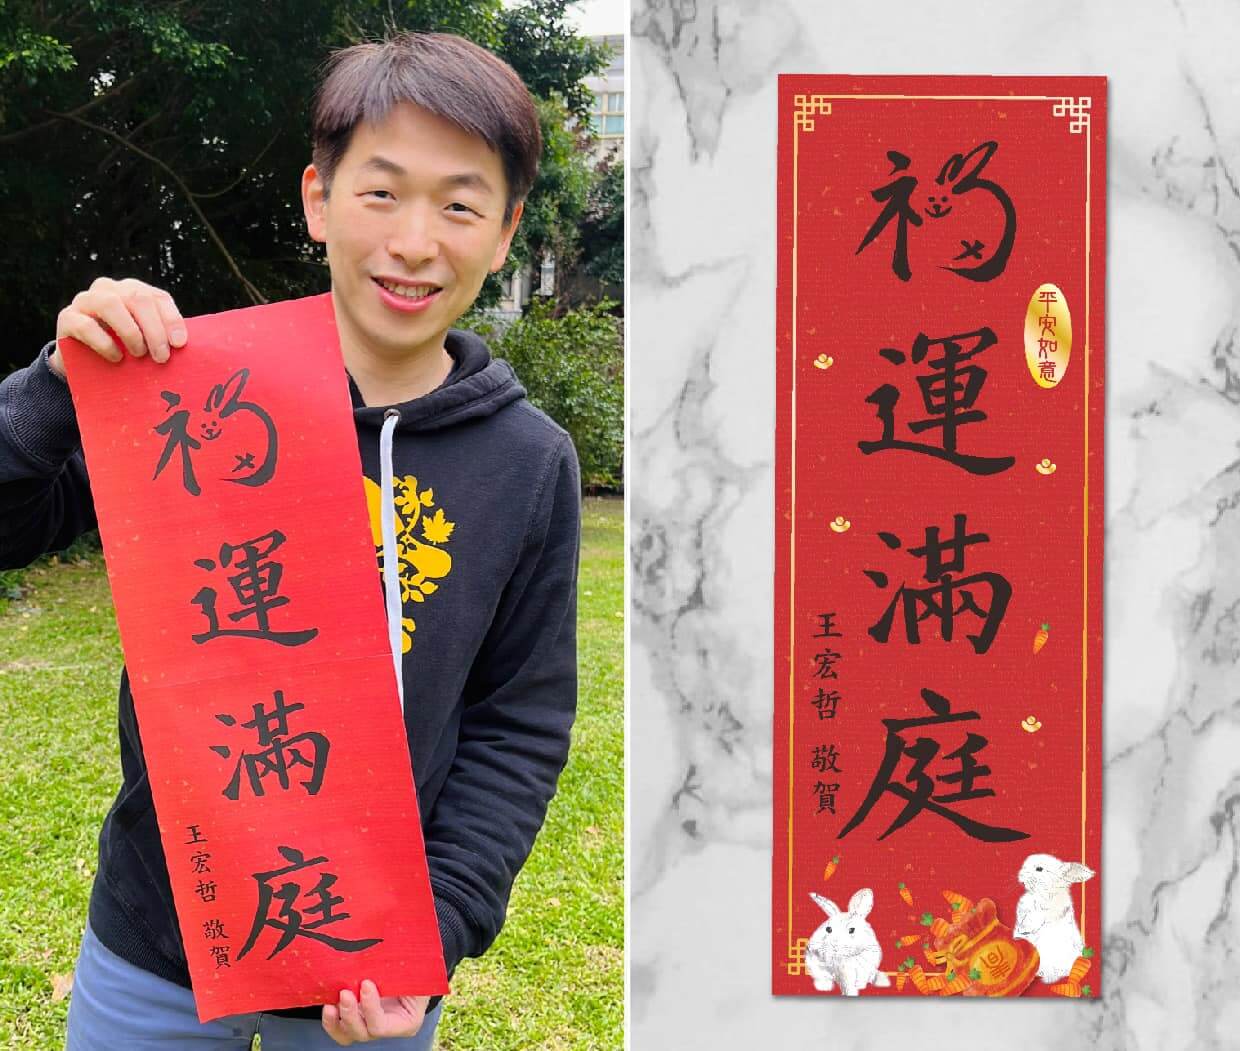 福運滿庭
王宏哲 敬賀
平安如意
福運滿庭
王宏哲 敬賀